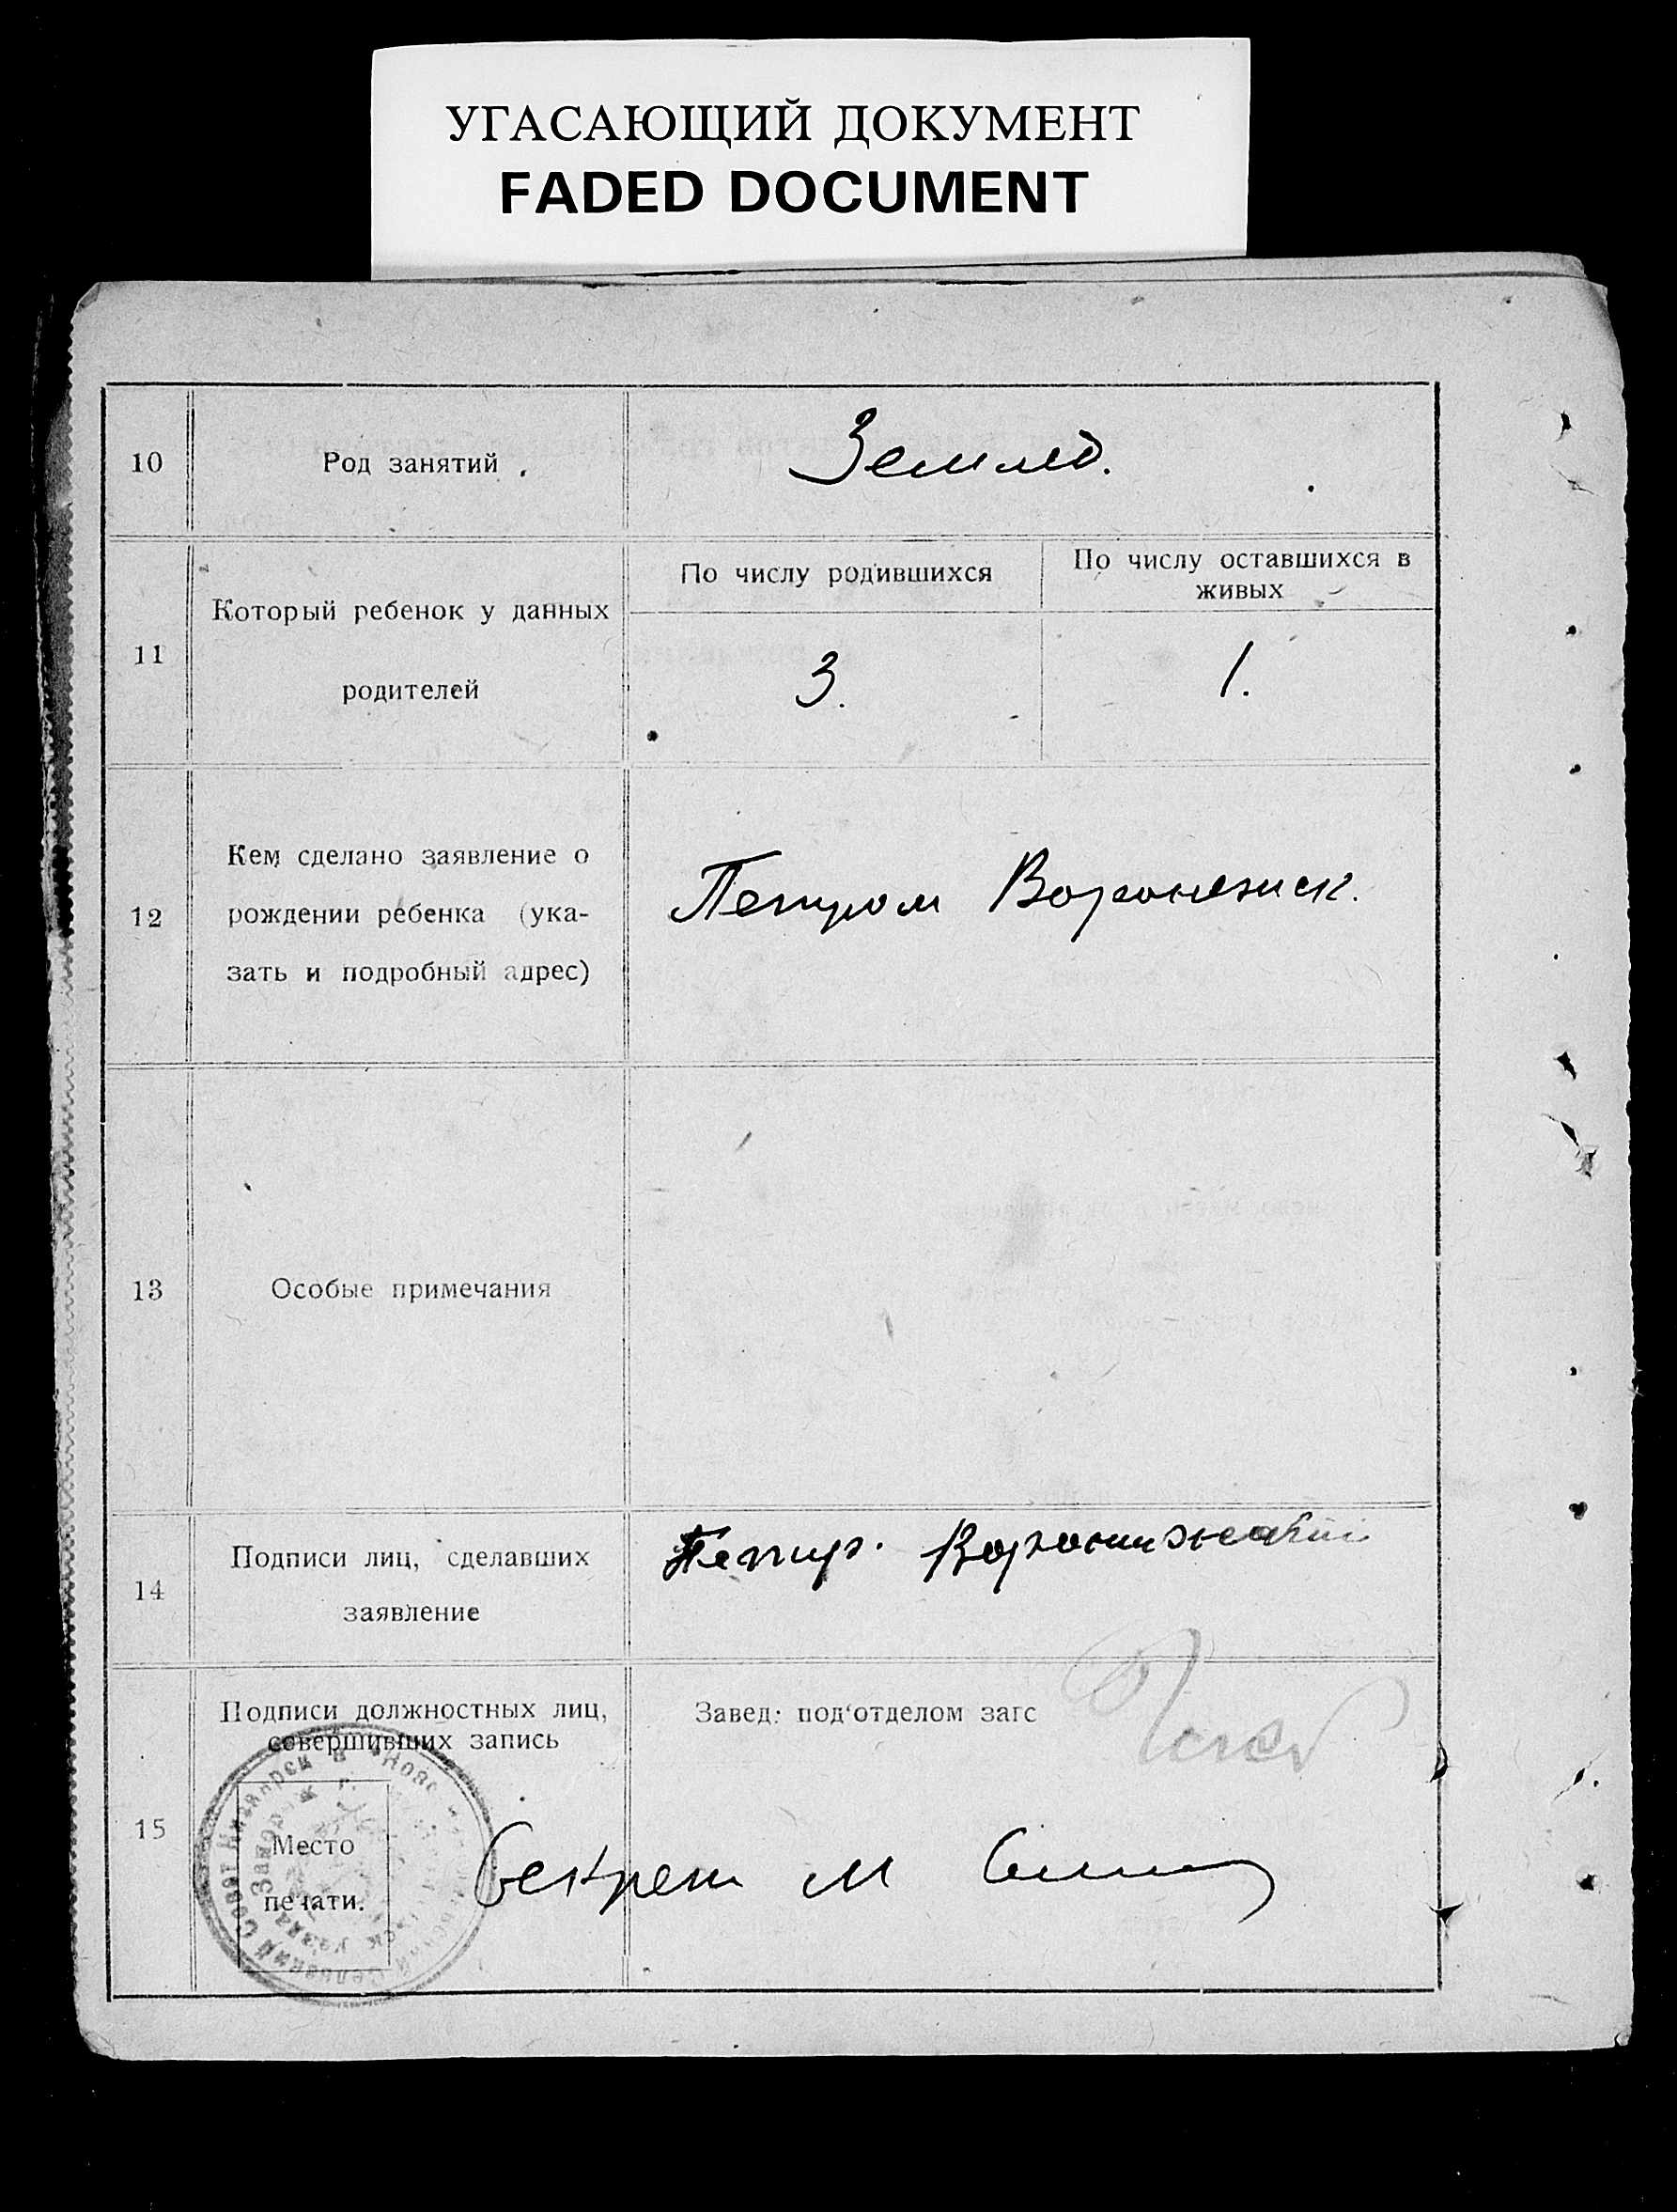 УГАСАЮЩИЙ ДОКУМЕНТ
FADED DOCUMENT
10
Род занятий
Землед.
11
Который ребенок у данных
родителей
По числу родившихся
По числу оставшихся в
живых
3.
1.
12
Кем сделано заявление о
рождении ребенка (ука-
зать и подробный адрес)
Петром Воронежск.
13
Особые примечания
14
Подписи лиц, сделавших
заявление
Петр.
15
Подписи должностных лиц,
совершивших запись
Завед. под'отделом загс
Место
печати.
Секрет М